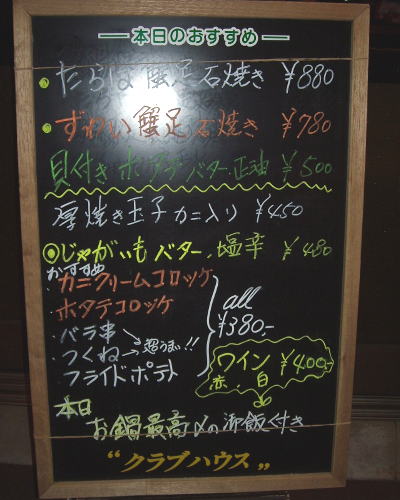 本日のおすすめ
たらば蟹足石焼き ¥880
ずわい蟹足石焼き ¥780
貝付きホタテバター正油 ¥500
厚焼き玉子カニ入り ¥450
◎じゃがいもバター、塩辛 ¥480
おすすめ
カニクリームコロッケ
ホタテコロッケ
・バラ串
・つくね → 超うまい!!
・フライドポテト
all ¥380-
ワイン ¥400-
赤、白
本日
お鍋最高〆の御飯付き
“クラブハウス„